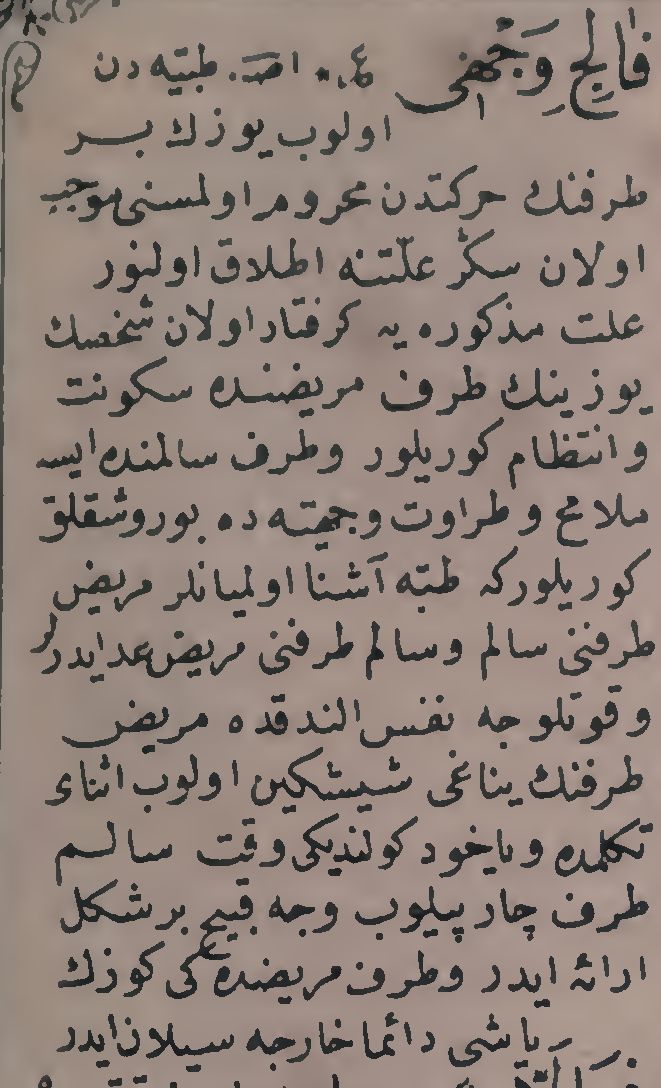 فالج وجهی ع. اصـ. طبیه دن
اولوب یوزك بـــر
طرفنك حرکتدن محروم اولمسنی موجب
اولان سکز علتـنه اطلاق اولنور
علت مذکوره یه کرفتار اولان شخصك
یوزینك طرف مریضنـده سکونت
وانتظام کوریلور وطرف سالمنده ایسه
ملامح وطراوت وجهیـه ده بوروشقلق
کوریلورکه طبه آشنا اولمیانلر مریض
طرفنی سالم وسالم طرفنی مریض عد ایدر
وقوتلوجه نفس الندقده مریض
طرفنك یناغی شیشکین اولوب اثنای
تکلمده ویاخود کولندیکی وقت سالـم
طرف چارپیلوب وجه قبیح بر شکل
ارائه ایدر وطرف مریضده کی کوزك
یاشی دائما خارجه سیلان ایدر